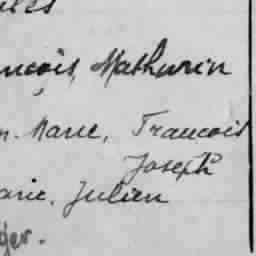 ncois, Mathurin
n. Marie, Francois
Joseph
arie, Julien
ger.